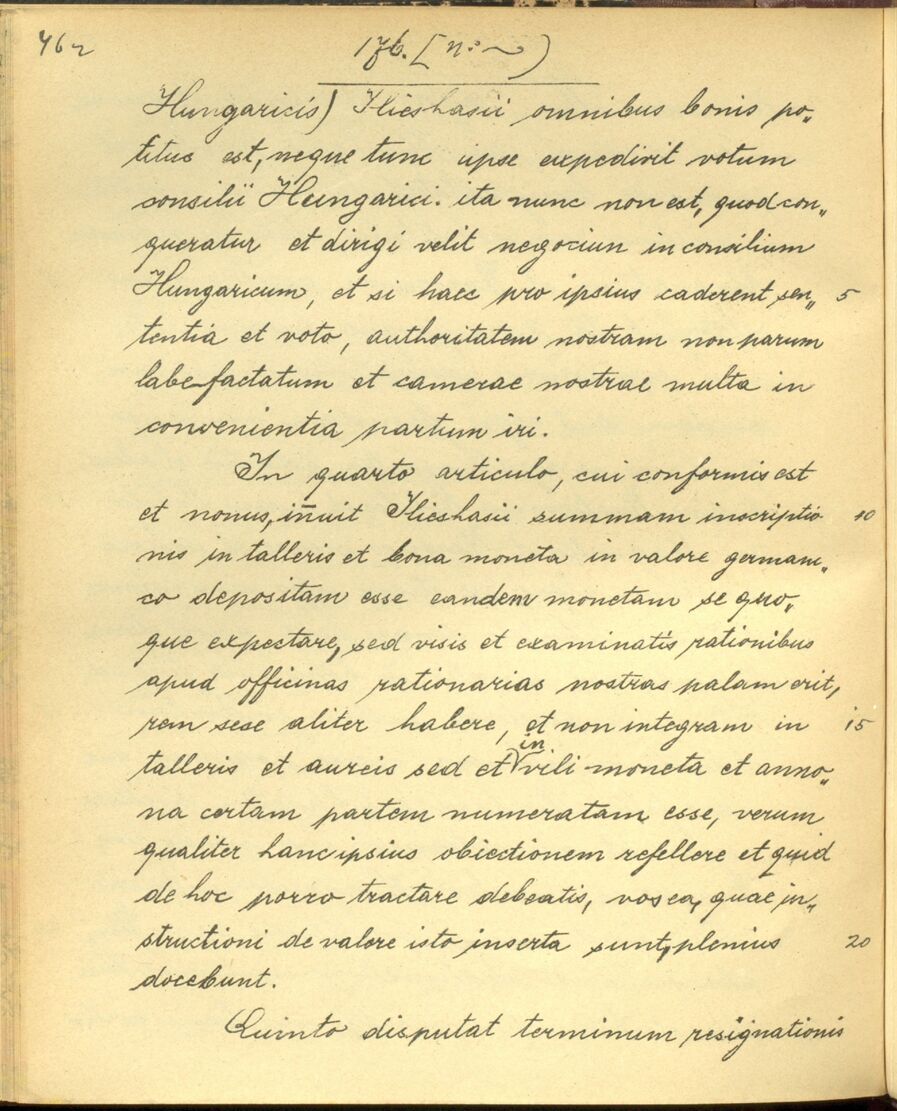 462
176. [n:~)
Hungaricis) Illieshasii omnibus bonis po„
titus est, neque tunc ipse expedivit votum
consilii Hungarici. ita nunc non est, quod con„
queratur et dirigi velit negocium in consilium
Hungaricum, et si haec pro ipsius caderent sen„ 5
tentia et voto, authoritatem nostram non parum
labefactatum et camerae nostrae multa in
convenientia partum iri.
In quarto articulo, cui conformis est
et nonus, iñuit Illieshasii summam inscriptio 10
nis in talleris et bona moneta in valore germani„
co depositam esse eandem monetam se quo„
que expectare, sed visis et examinatis rationibus
apud officinas rationarias nostras palam erit,
rem sese aliter habere, et non integram in 15
talleris et aureis sed et in vili moneta et anno„
na certam partem numeratam esse, verum
qualiter hanc ipsius obiectionem refellere et quid
de hoc porro tractare debeatis, vos ea, quae in„
structioni de valore isto inserta sunt, plenius 20
docebunt.
Quinto disputat terminum resignationis